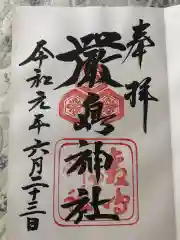 奉拝
嚴島神社
令和元年六月二十三日